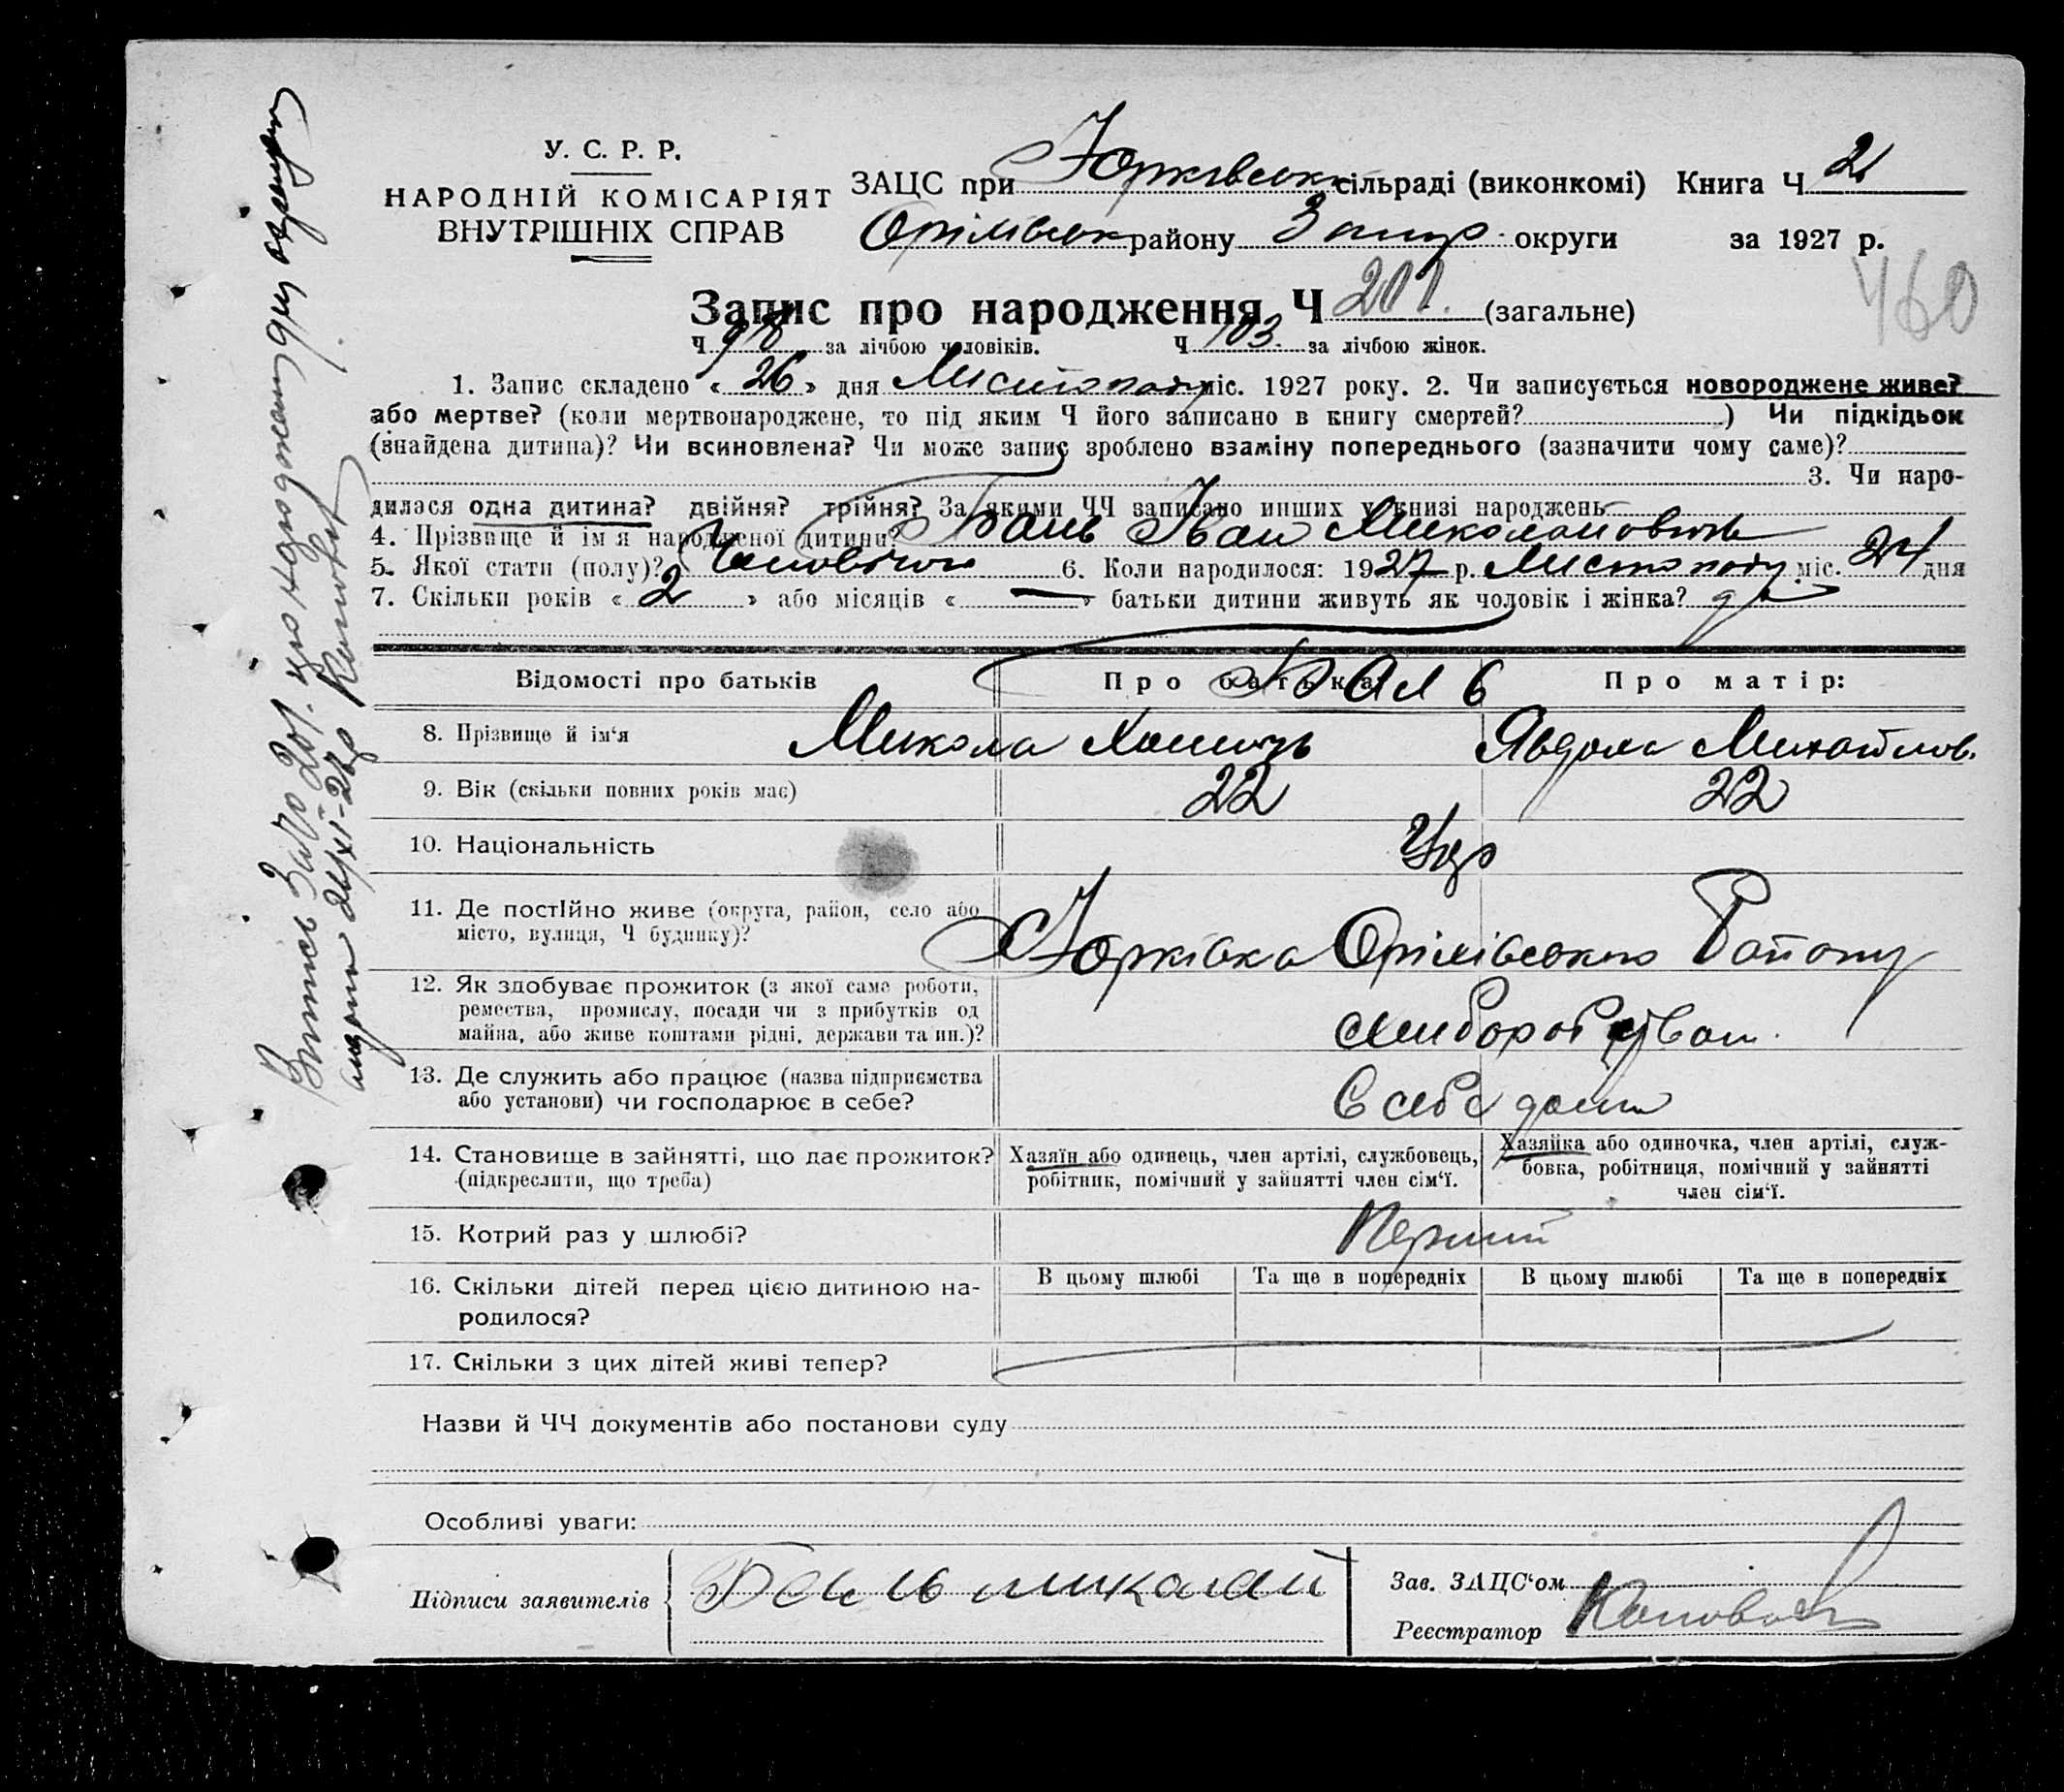 У. С. Р. Р.
НАРОДНІЙ КОМІСАРІЯТ
ВНУТРІШНІХ СПРАВ
ЗАЦС при Юрківськ сільраді (виконкомі) Книга Ч 2
Оріхівськ району Запор. округи за 1927 р.
460
Запис про народження Ч 201. (загальне)
Ч 98 за лічбою чоловіків. Ч 103. за лічбою жінок.
1. Запис складено « 26 » дня Листопаду міс. 1927 року. 2. Чи записується новороджене живе?
або мертве? (коли мертвонароджене, то під яким Ч його записано в книгу смертей?) Чи підкідьок
(знайдена дитина)? Чи всиновлена? Чи може запис зроблено взаміну попереднього (зазначити чому саме)?
3. Чи наро-
дилася одна дитина? двійня? трійня? За якими ЧЧ записано инших у книзі народжень
4. Прізвище й ім'я народженої дитини? Баль Іван Миколайович
5. Якої стати (полу)? Чоловічої 6. Коли народилося: 1927 р. Листопаду міс. 24 дня
7. Скільки років « 2 » або місяців « — » батьки дитини живуть як чоловік і жінка? да
Відомості про батьків Про батька: Про матір:
Баль
8. Прізвище й ім'я Микола Явдоха Михайлов.
9. Вік (скільки повних років має) 22 22
10. Національність Укр
11. Де постійно живе (округа, район, село або
місто, вулиця, Ч будинку)? Юрківка Оріхівського Району
12. Як здобуває прожиток (з якої саме роботи,
ремества, промислу, посади чи з прибутків од
майна, або живе коштами рідні, держави та ин.)? хлиборобством.
13. Де служить або працює (назва підприємства
або установи) чи господарює в себе? В себе дома
14. Становище в зайнятті, що дає прожиток?
(підкреслити, що треба)
Хазяїн або одинець, член артілі, службовець,
робітник, помічний у зайнятті член сім'ї.
Хазяйка або одиночка, член артілі, служ-
бовка, робітниця, помічний у зайнятті
член сім'ї.
15. Котрий раз у шлюбі? Перший
16. Скільки дітей перед цією дитиною на-
родилося?
В цьому шлюбі Та ще в попередніх В цьому шлюбі Та ще в попередніх
17. Скільки з цих дітей живі тепер?
Назви й ЧЧ документів або постанови суду
Особливі уваги:
Підписи заявителів Баль миколай
Зав. ЗАЦС'ом
Реєстратор
Витись За № 201. про народження